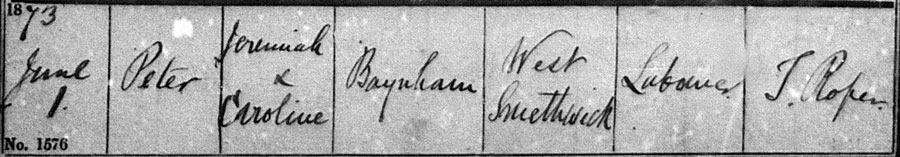 1873
June
1.
No. 1576
Peter
Jeremiah
&
Caroline
Baynham
West
Smethwick
Labourer
T. Roper